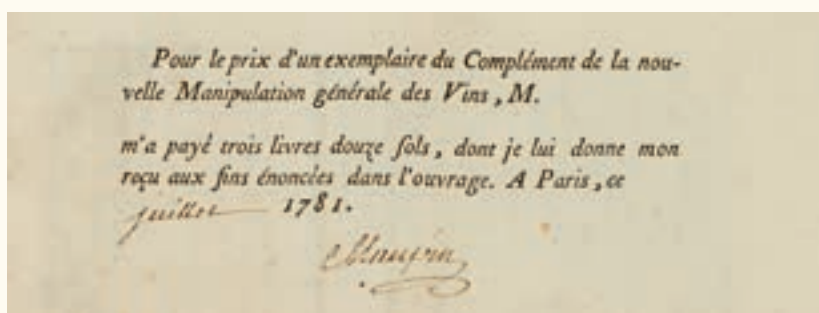 Pour le prix d'un exemplaire du Complément de la nou-
velle Manipulation générale des Vins, M.
m'a payé trois livres douze ſols, dont je lui donne mon
roçu aux fins énoncées dans l'ouvrage. A Paris, ce
juillet 1781.
Maupin